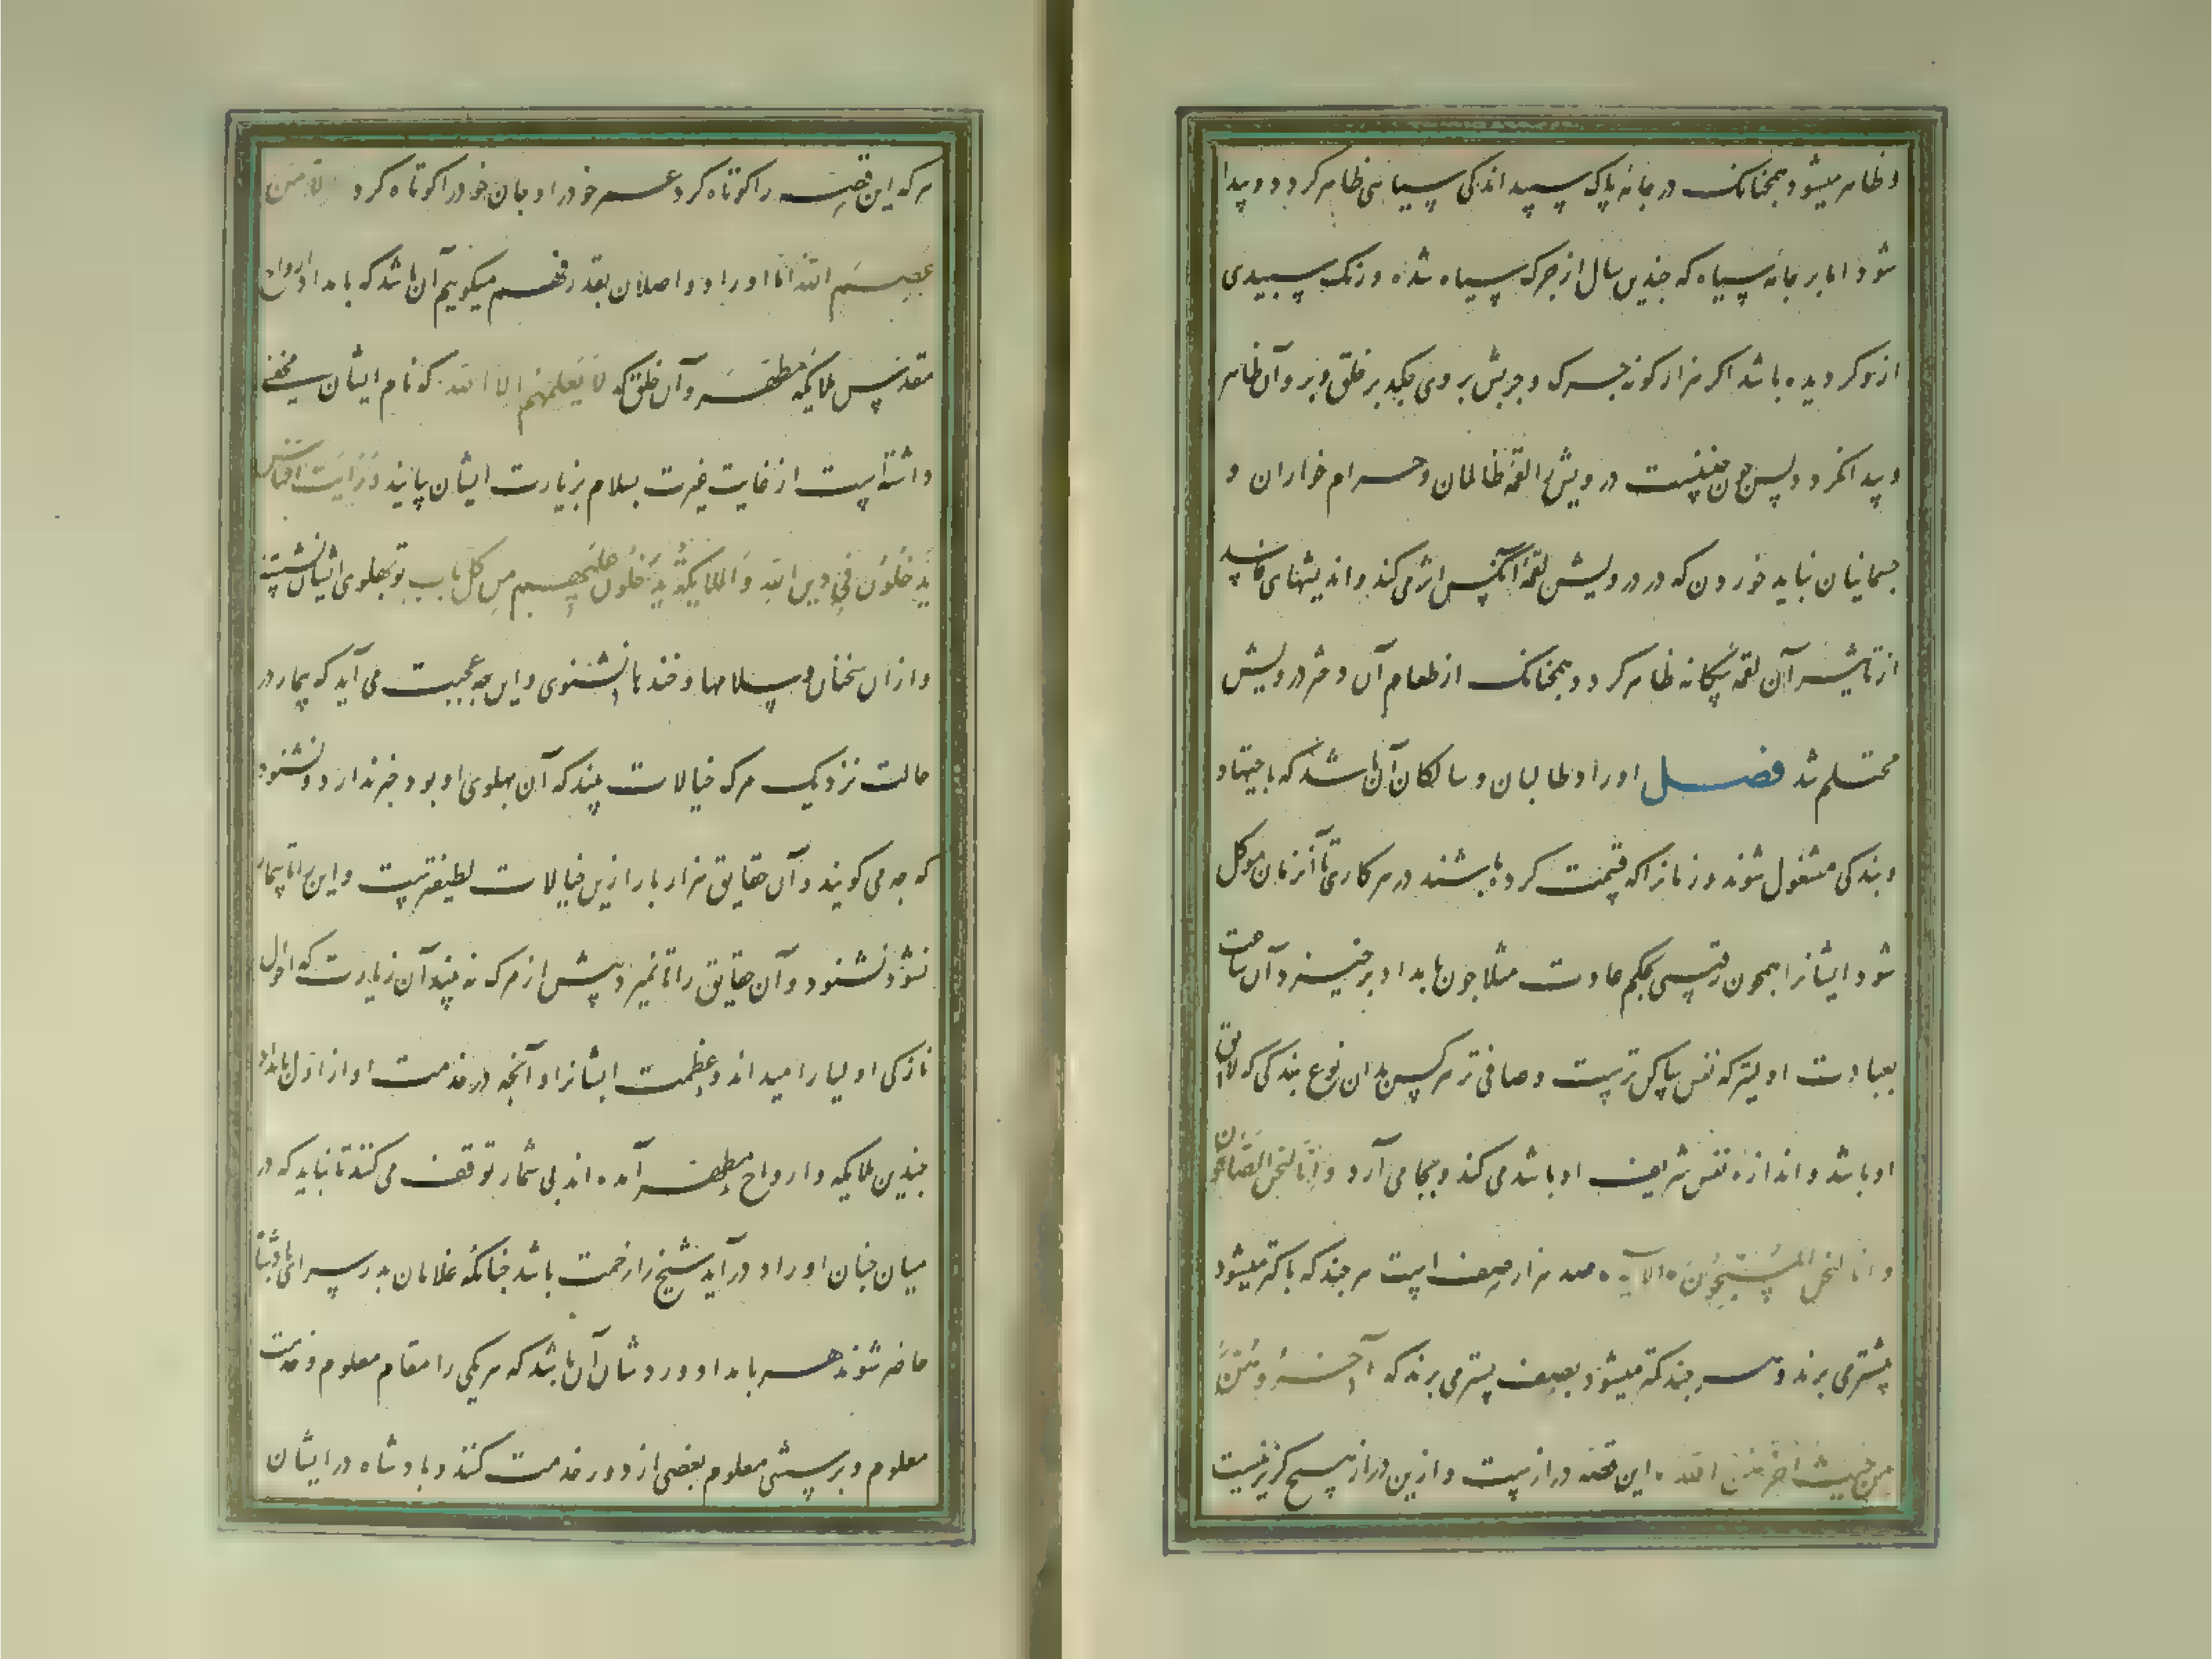 و ظاهر میشود همچنانک در جامهٔ پاک سپید اندکی سیاهی ظاهر کردد و پیدا
شود اما بر جامهٔ سیاه که چندین سال از چرک سیاه شده و رنک سپیدی
ازو کردیده باشد اکر هزار کونه چرک و چربش بر وی چکد بر خلق و برو آن ظاهر
و پیدا نکردد پس چون چنینست درویش را لقمهٔ ظالمان و حرام خواران و
جسمانیان نباید خوردن که در درویش لقمهٔ آنکس اثر می کند و اندیشهای فاسد
از تاثیر آن لقمهٔ بیکانه ظاهر کردد همچنانک از طعام آن دختر درویش
محتلم شد فصل اوراد طالبان و سالکان آن باشد که باجتهاد
و بندکی مشغول شوند و زمانرا که قسمت کرده باشند در هر کاری تا آنزمان موکل
شود ایشانرا همچون رقیبی بحکم عادت مثلا چون بامداد برخیزد آن ساعت
بعبادت اولیتر که نفس ساکن ترست و صافی تر هر کس بدان نوع بندکی که لایق
او باشد و اندازهٔ نفس شریف او باشد می کند و بجا می آرد و انا لنحن الصافون
و انا لنحن المسبحون الآیه صد هزار صف است هر چند که پاکتر میشود
پیشتر می برند و هر چند کمتر میشود بصف پستر می برند که اخروهن
من حیث اخرهن الله این قصه درازست و ازین دراز هیچ کزیر نیست
هر که این قصه را کوتاه کرد عمر خود را و جان خود را کوتاه کرد الا من
عصم الله اما اوراد واصلان بقدر فهم میکویم آن باشد که بامداد ارواح
مقدس ملایکهٔ مطهر و آن خلق که لا یعلمهم الا الله که نام ایشان مخفی
داشته است از غایت غیرت بسلام بزیارت ایشان بیایند و رایت الناس
یدخلون فی دین الله و الملایکة یدخلون علیهم من کل باب تو بپهلوی ایشان نشسته
و ازان سخنان و سلامها و خندها نشنوی و این چه عجبت می آید که بیمار در
حالت نزدیک مرک خیالات بیند که آن پهلوی او بود خبر ندارد و نشنود
که چه می کویند و آن حقایق هزار بار ازین خیالات لطیفترست و این را تا بیمار
نشود نشنود و آن حقایق را تا نمیرد پیش از مرک نه بیند آن زیارت که احوال
نازکی اولیا را میداند و عظمت ایشانرا و آنچه در خدمت او از اول بامداد
چندین ملایکه و ارواح مطهر آمده اند بی شمار توقف می کنند تا نباید که در
میان چنان اوراد درآید شیخ را زحمت باشد چنانکه غلامان بدر سرای پادشاه
حاضر شوند هر بامداد ورد شان آن باشد که هر یکی را مقام معلوم و خدمت
معلوم و پرستش معلوم بعضی از دور خدمت کنند و پادشاه در ایشان